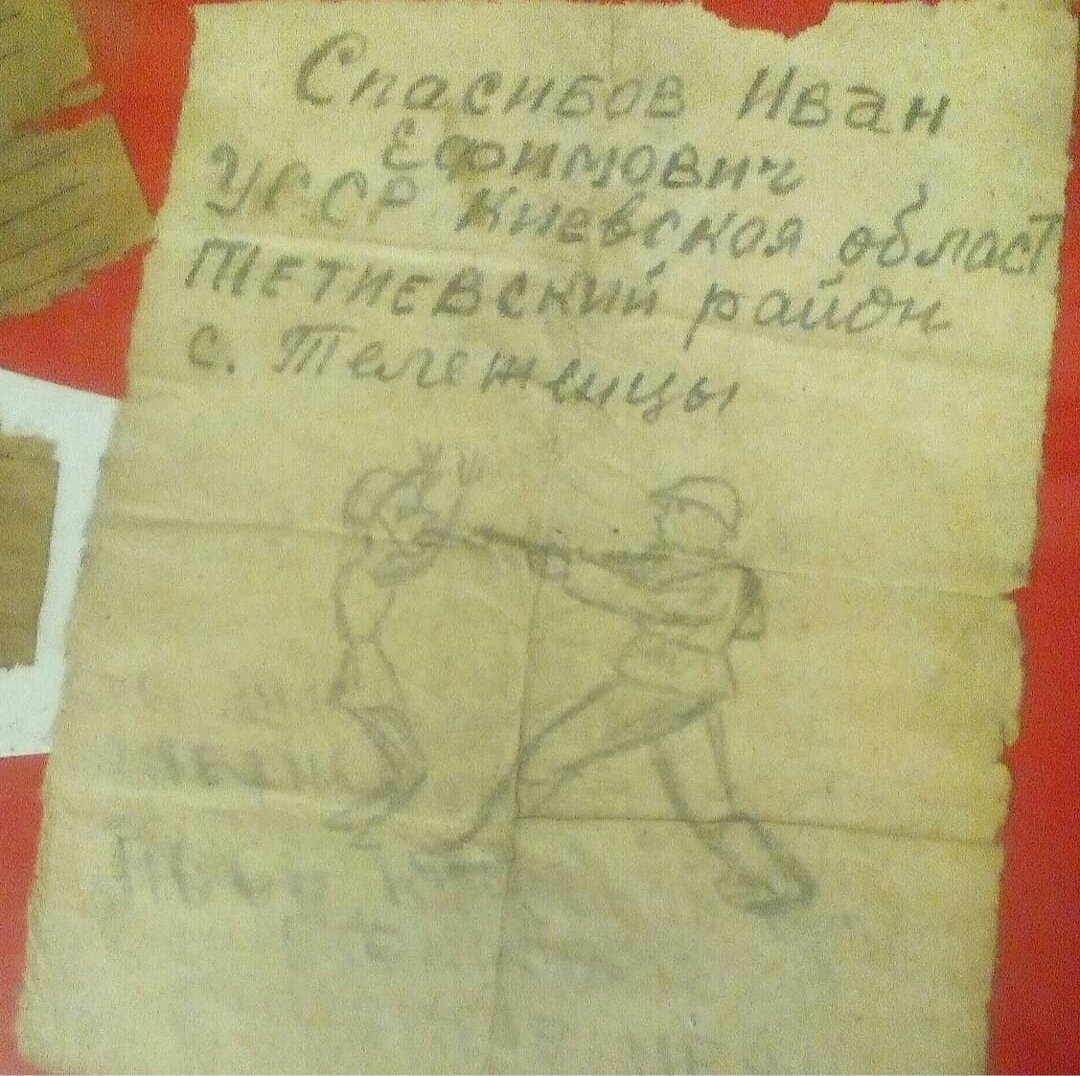 Спасибов Иван
Ефимович
УССР Киевская област
Тетиевский район
с. Тележинцы